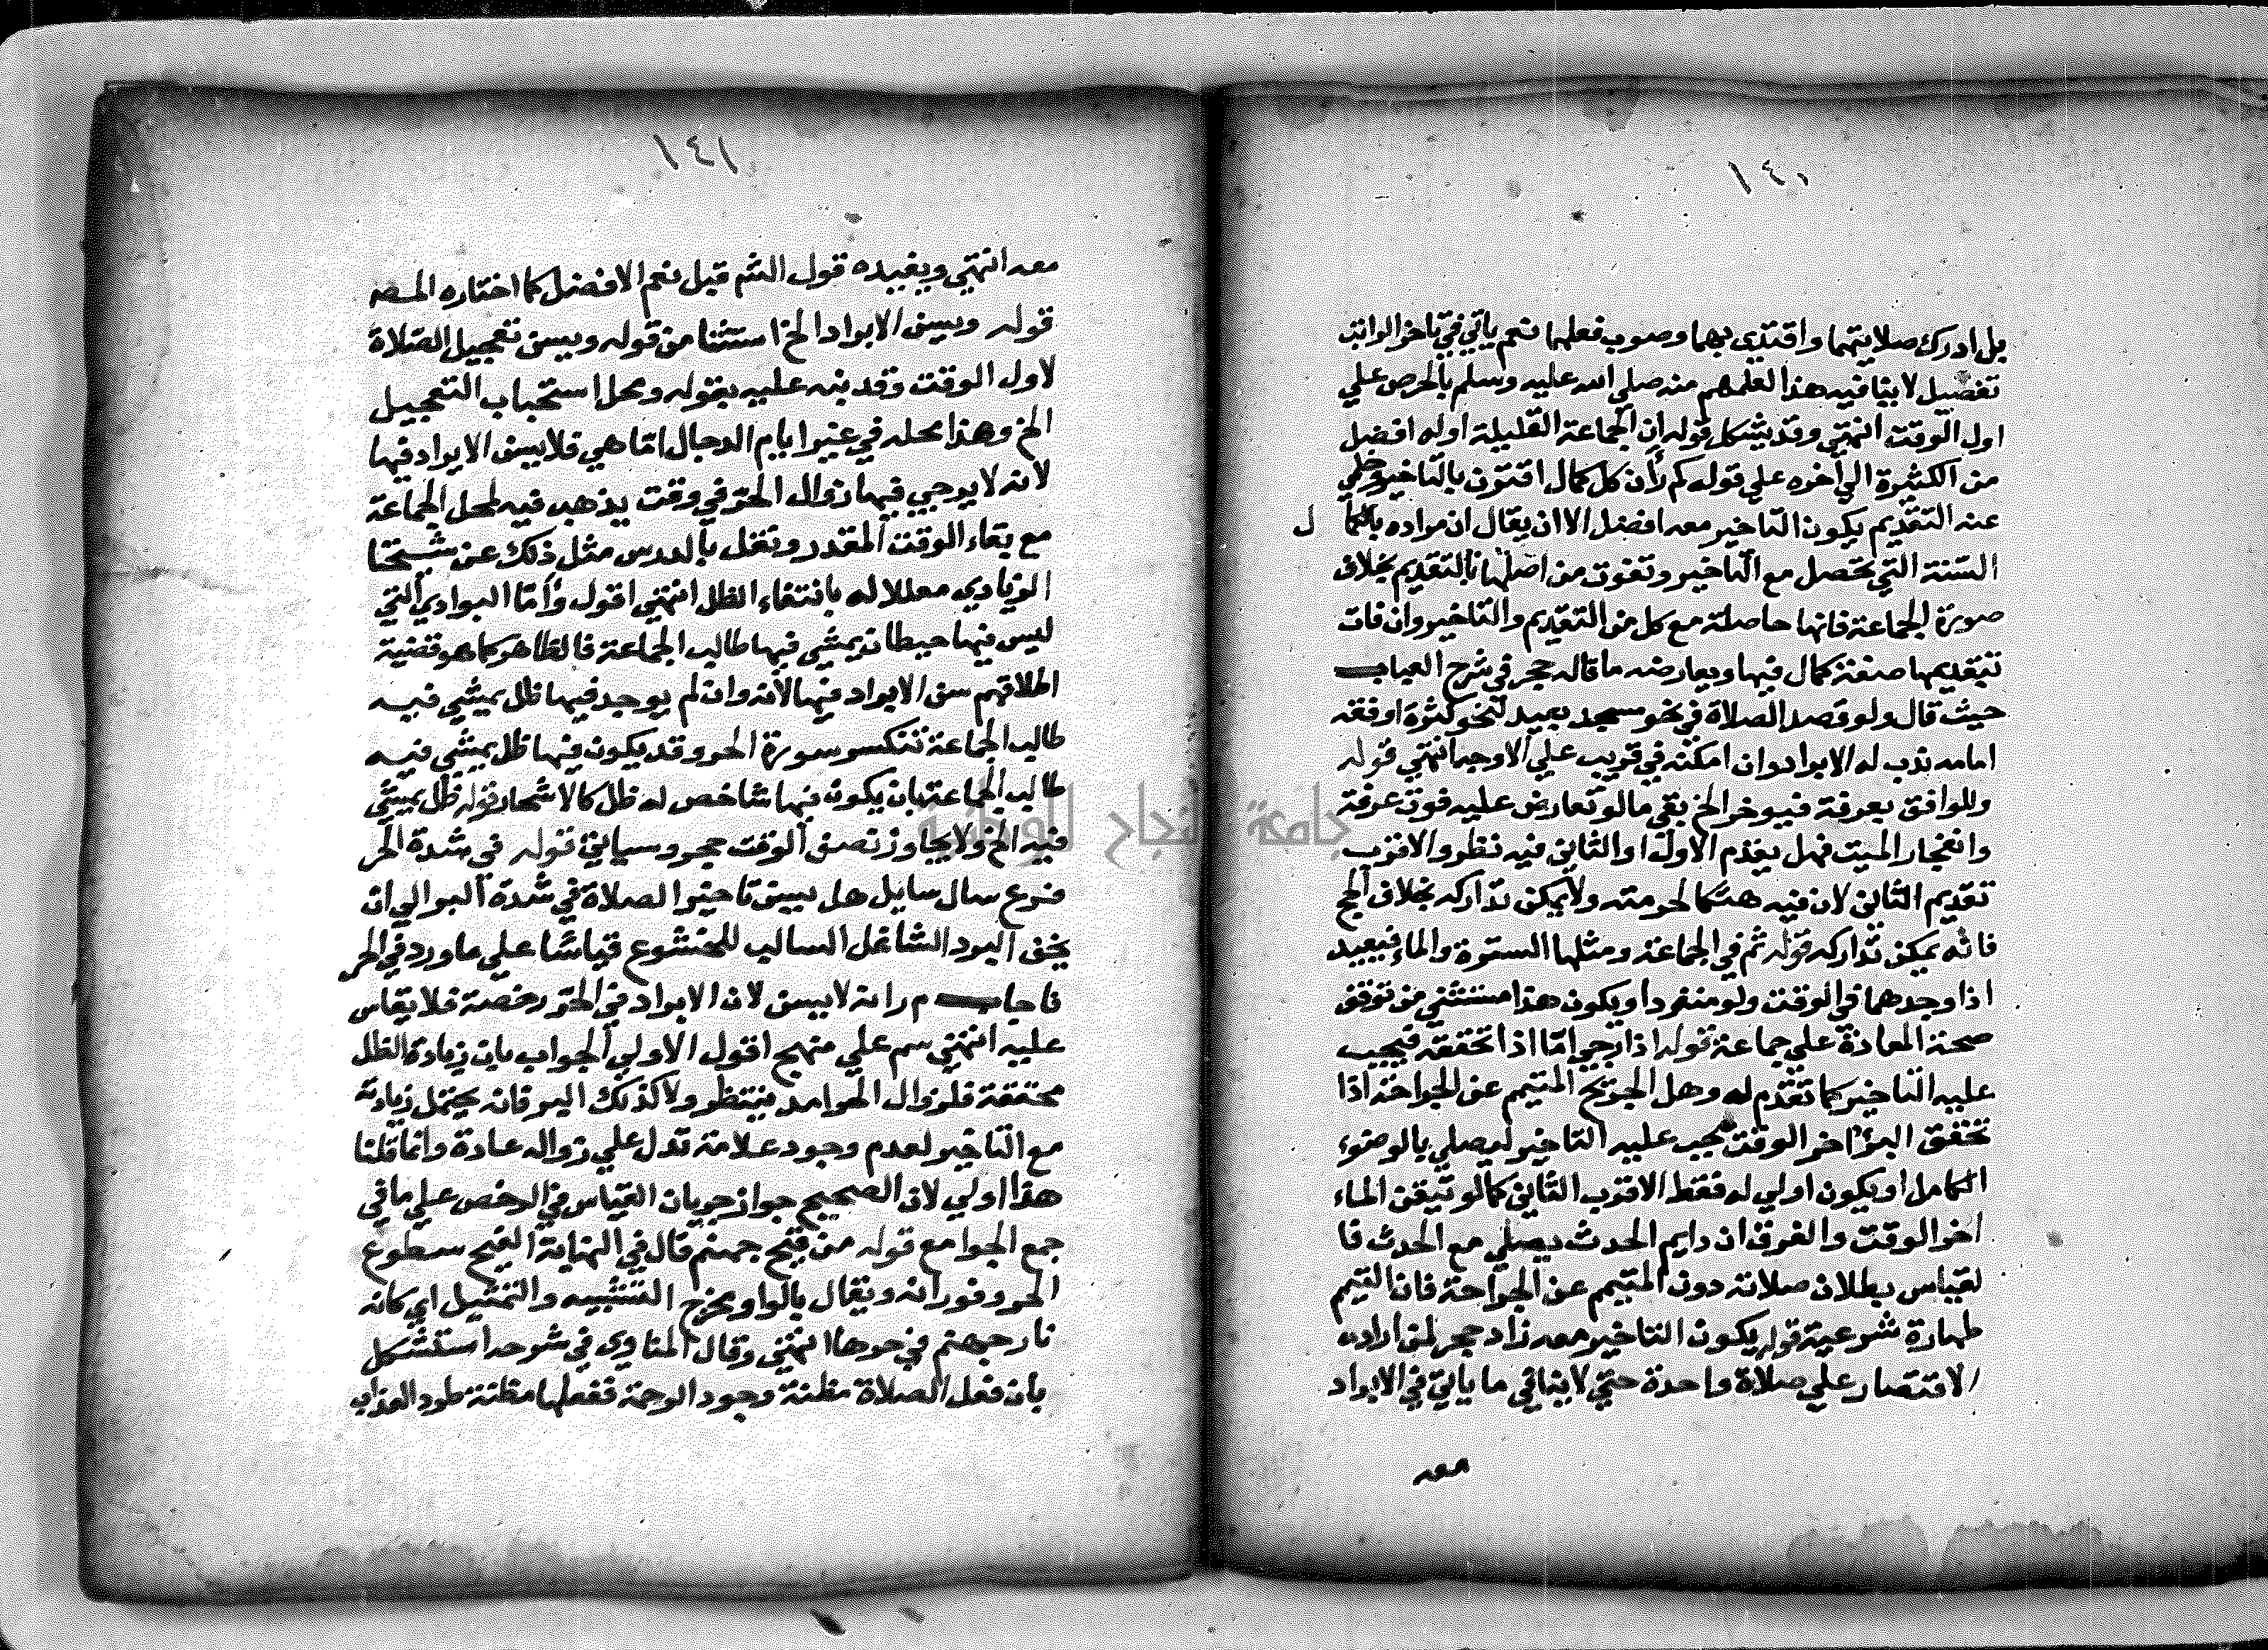 ١٤٠
بل ادرك صلاتهما واقتدي بهما وصوب فعلهما نعم ياتي في تاخر الراتب
تفصيل لا ينافيه هذا لعلمهم منه صلي الله عليه وسلم بالحرص علي
اول الوقت انتهي وقد يشكل قوله ان الجماعة القليلة اوله افضل
من الكثيرة الي اخره علي قولهم لأن كل كمال اقترن بالتاخير وخلي
عنه التقديم يكون التاخير معه افضل الا ان يقال ان مراده بالكما ل
السنة التي تحصل مع التاخير وتفوت من اصلها بالتقديم بخلاف
صورة الجماعة فانها حاصلة مع كل من التقديم والتاخير وان فات
بتقديمها صفة كمال فيها ويعارضه ما قاله حجر في شرح العباب
حيث قال ولو قصد الصلاة في نحو مسجد بعيد لنحو كثرة او فقه
امامه ندب له الابراد وان امكنه في قريب علي الاوجه انتهي قوله
وللوافق بعرفة فيوخر الخ بقي ما لو تعارض عليه فوت عرفة
وانفجار الميت فهل يقدم الاول او الثاني فيه نظر والاقرب
تقديم الثاني لان فيه هتكا لحرمته ولا يمكن تداركه بخلاف الحج
فانه يمكن تداركه قوله ثم في الجماعة ومثلها السترة والماء فيعيد
اذا وجدهما في الوقت ولو منفردا ويكون هذا مستثني من توقف
صحة المعادة علي جماعة قوله اذا رجي امّا اذا تحققه فيجب
عليه التاخير كما تقدم له وهل الجريح المتيمم عن الجراحة اذا
تحقق البرؤ اخر الوقت يجب عليه التاخير ليصلي بالوضوء
الكامل او يكون اولي له فقط الاقرب الثاني كما لو تيقن الماء
اخر الوقت والفرق ان دايم الحدث يصلي مع الحدث فا
لقياس بطلان صلاته دون المتيمم عن الجراحة فان التيمم
طهارة شرعية قوله يكون التاخير معه زاد حجر لمن اراد
الاقتصار علي صلاة واحدة حتي لا ينافي ما ياتي في الابراد
معه
١٤١
معه انتهي ويفيده قول الشم قبل نعم الافضل كما اختاره المصه
قوله ويسن الابراد الخ استثنا من قوله ويسن تعجيل الصلاة
لاول الوقت وقد بنه عليه بقوله ومحل استحباب التعجيل
الخ وهذا محله في غير ايام الدجال امّا هي فلا يسن الابراد فيها
لانه لا يرجي فيها زوال الحر في وقت يذهب فيه لمحل الجماعة
مع بقاء الوقت المقدر ونقل بالدرس مثل ذلك عن شيخنا
الزيادي معللا له بانتفاء الظل انتهي اقول وأمّا البوادي التي
ليس فيها حيطان يمشي فيها طالب الجماعة فالظاهر كما هو قضية
اطلاقهم سن الابراد فيها لأنه وان لم يوجد فيها ظل يمشي فيه
طالب الجماعة تنكسر سورة الحر وقد يكون فيها ظل يمشي فيه
طالب الجماعة بان يكون فيها شاخص له ظل كالاشجار قوله ظل يمشي
فيه الخ ولا يجاوز نصف الوقت حجر وسياتي قوله في شدة الحر
فرع سال سايل هل يسن تاخير الصلاة في شدة البرد الي ان
يخف البرد الشاغل السالب للخشوع قياسًا علي ما ورد في الحر
فاجاب م ر انه لا يسن لان الابراد في الحر رخصة فلا يقاس
عليه انتهي سم علي منهج اقول الاولي الجواب بان زيادة الظل
محققة فلزوال الحر امد ينتظر ولا كذلك البرد فانه يحتمل زيادته
مع التاخير لعدم وجود علامة تدل علي زواله عادة وانما قلنا
هذا اولي لان الصحيح جواز جريان القياس في الرخص علي ما في
جمع الجوامع قوله من فيح جهنم قال في النهاية الفيح سطوع
الحر وفورانه ويقال بالواو مخرج التشبيه والتمثيل اي كانه
نار جهنم في حرها انتهي وقال المناوي في شرحه استشكل
بان فعل الصلاة مظنة وجود الرحمة ففعلها مظنة طرد العذاب
جامعة النجاح الوطنية